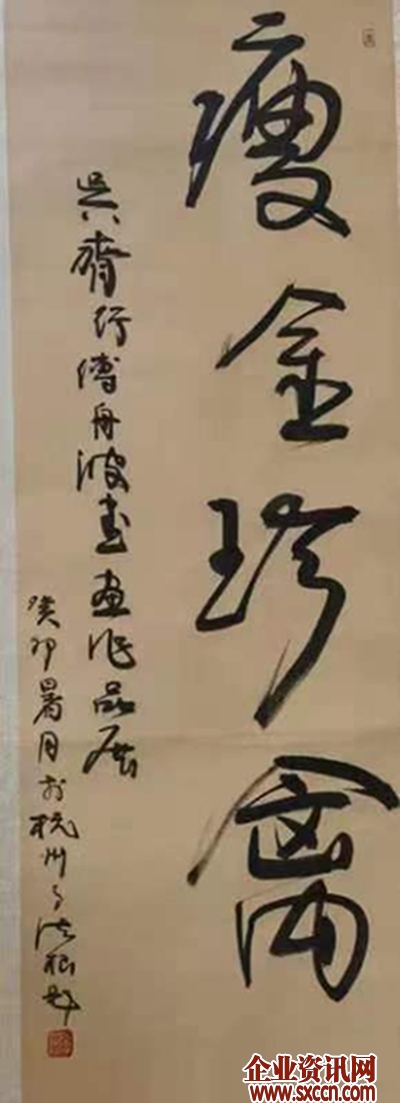 瘦金珍禽
行傅舟波書画作品展
癸卯暑月於杭州
企业资讯网
www.sxccn.com